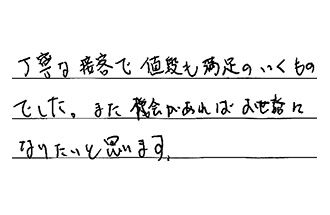 丁寧な接客で値段も満足のいくもの
でした。また機会があればお世話に
なりたいと思います。